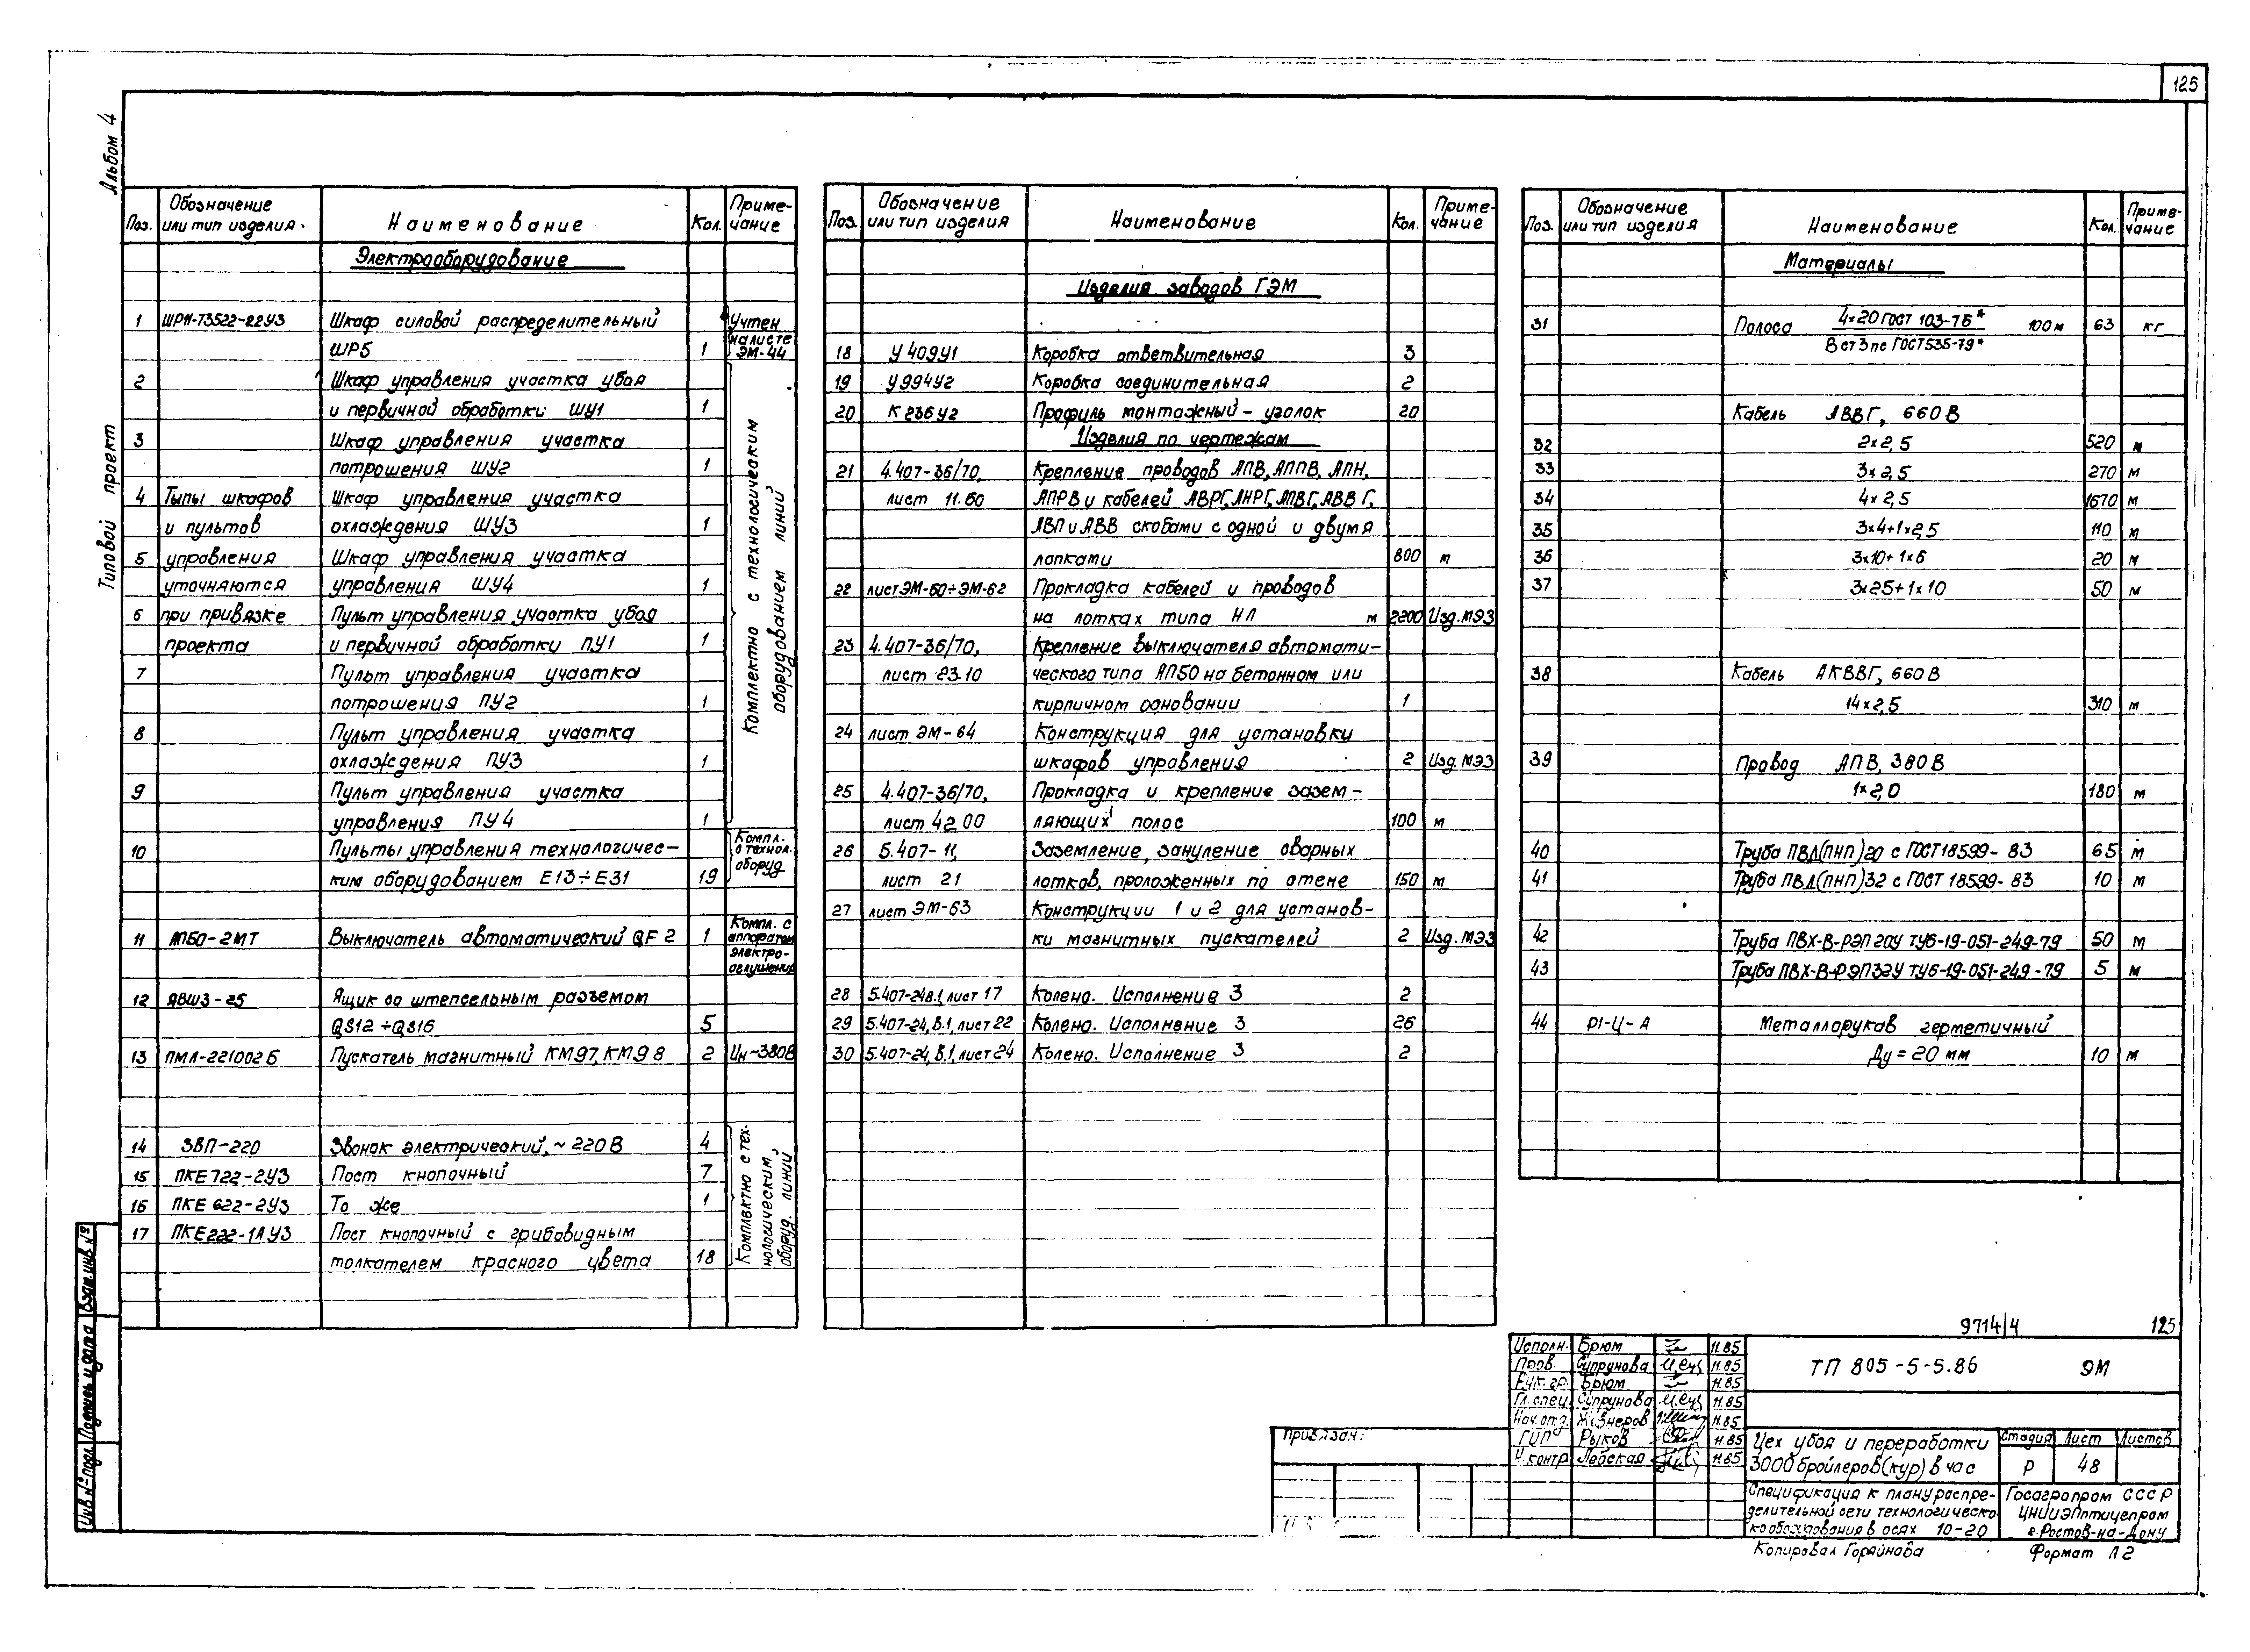 125
Альбом 4
Типовой проект
Поз. Обозначение или тип изделия. Наименование Кол. Примечание
Электрооборудование
1 ШР11-73522-22У3 Шкаф силовой распределительный Учтен
ШР5 1 на листе ЭМ-44
2 Шкаф управления участка убоя
и первичной обработки ШУ1 1
3 Шкаф управления участка
потрошения ШУ2 1
4 Типы шкафов Шкаф управления участка
и пультов охлаждения ШУ3 1
5 управления Шкаф управления участка
уточняются управления ШУ4 1
6 при привязке Пульт управления участка убоя
проекта и первичной обработки ПУ1 1
7 Пульт управления участка
потрошения ПУ2 1
8 Пульт управления участка
охлаждения ПУ3 1
9 Пульт управления участка
управления ПУ4 1
Комплектно с технологическим
оборудованием линий
10 Пульты управления технологичес-
ким оборудованием Е13÷Е31 19
Компл.
с технол.
оборуд.
11 АП50-2МТ Выключатель автоматический QF2 1
Компл. с
аппаратом
электро-
оглушения
12 ЯВШ3-25 Ящик со штепсельным разъемом
QS12÷QS16 5
13 ПМЛ-221002Б Пускатель магнитный КМ97, КМ98 2 Uн~380В
14 ЗВП-220 Звонок электрический, ~220В 4
15 ПКЕ 722-2У3 Пост кнопочный 7
16 ПКЕ 622-2У3 То же 1
17 ПКЕ222-1АУ3 Пост кнопочный с грибовидным
толкателем красного цвета 18
Комплектно с тех-
нологическим
оборуд. линий
Поз. Обозначение или тип изделия Наименование Кол. Примечание
Изделия заводов ГЭМ
18 У409У1 Коробка ответвительная 3
19 У994У2 Коробка соединительная 2
20 К236У2 Профиль монтажный - уголок 20
Изделия по чертежам
21 4.407-36/70, Крепление проводов АПВ, АППВ, АПН,
лист 11.60 АПРВ и кабелей АВРГ, АНРГ, АПВГ, АВВГ,
АВП и АВВ скобами с одной и двумя
лапками 800 м
22 лист ЭМ-60÷ЭМ-62 Прокладка кабелей и проводов
на лотках типа НЛ м 2200 Изд. МЭЗ
23 4.407-36/70, Крепление выключателя автомати-
лист 23.10 ческого типа АП50 на бетонном или
кирпичном основании 1
24 лист ЭМ-64 Конструкция для установки
шкафов управления 2 Изд. МЭЗ
25 4.407-36/70, Прокладка и крепление зазем-
лист 42.00 ляющих полос 100 м
26 5.407-11, Заземление, зануление сварных
лист 21 лотков, проложенных по стене 150 м
27 лист ЭМ-63 Конструкции 1 и 2 для установ-
ки магнитных пускателей 2 Изд. МЭЗ
28 5.407-24В.1, лист 17 Колено. Исполнение 3 2
29 5.407-24, В.1, лист 22 Колено. Исполнение 3 26
30 5.407-24, В.1, лист 24 Колено. Исполнение 3 2
Поз. Обозначение или тип изделия Наименование Кол. Примечание
Материалы
31 Полоса 4×20 ГОСТ 103-76* 100м 63 кг
В ст3пс ГОСТ535-79*
Кабель АВВГ, 660В
32 2×2,5 520 м
33 3×2,5 270 м
34 4×2,5 1670 м
35 3×4+1×2,5 110 м
36 3×10+1×6 20 м
37 3×25+1×10 50 м
38 Кабель АКВВГ, 660В
14×2,5 310 м
39 Провод АПВ, 380В
1×2,0 180 м
40 Труба ПВД(ПНП)20 с ГОСТ18599-83 65 м
41 Труба ПВД(ПНП)32 с ГОСТ 18599-83 10 м
42 Труба ПВХ-В-РЭП 20У ТУ6-19-051-249-79 50 м
43 Труба ПВХ-В-РЭП32У ТУ6-19-051-249-79 5 м
44 Р1-Ц-А Металлорукав герметичный
Ду = 20 мм 10 м
9714/4 125
Исполн. Брюм 11.85
Пров. Супрунова 11.85
Рук. гр. Брюм 11.85
Гл. спец. Супрунова 11.85
Нач. отд. Живнеров 11.85
ГИП Рыков 11.85
Н. контр Лебская 11.85
ТП 805-5-5.86 ЭМ
Цех убоя и переработки
3000 бройлеров(кур) в час
Стадия Лист Листов
Р 48
Спецификация к плану распре-
делительной сети технологическо-
ко оборудования в осях 10-20
Госагропром СССР
ЦНИИЭПптицепром
г. Ростов-на-Дону
Привязан:
Копировал Горяйнова Формат А2
Инв № подл. Подпись и дата Взам. инв №